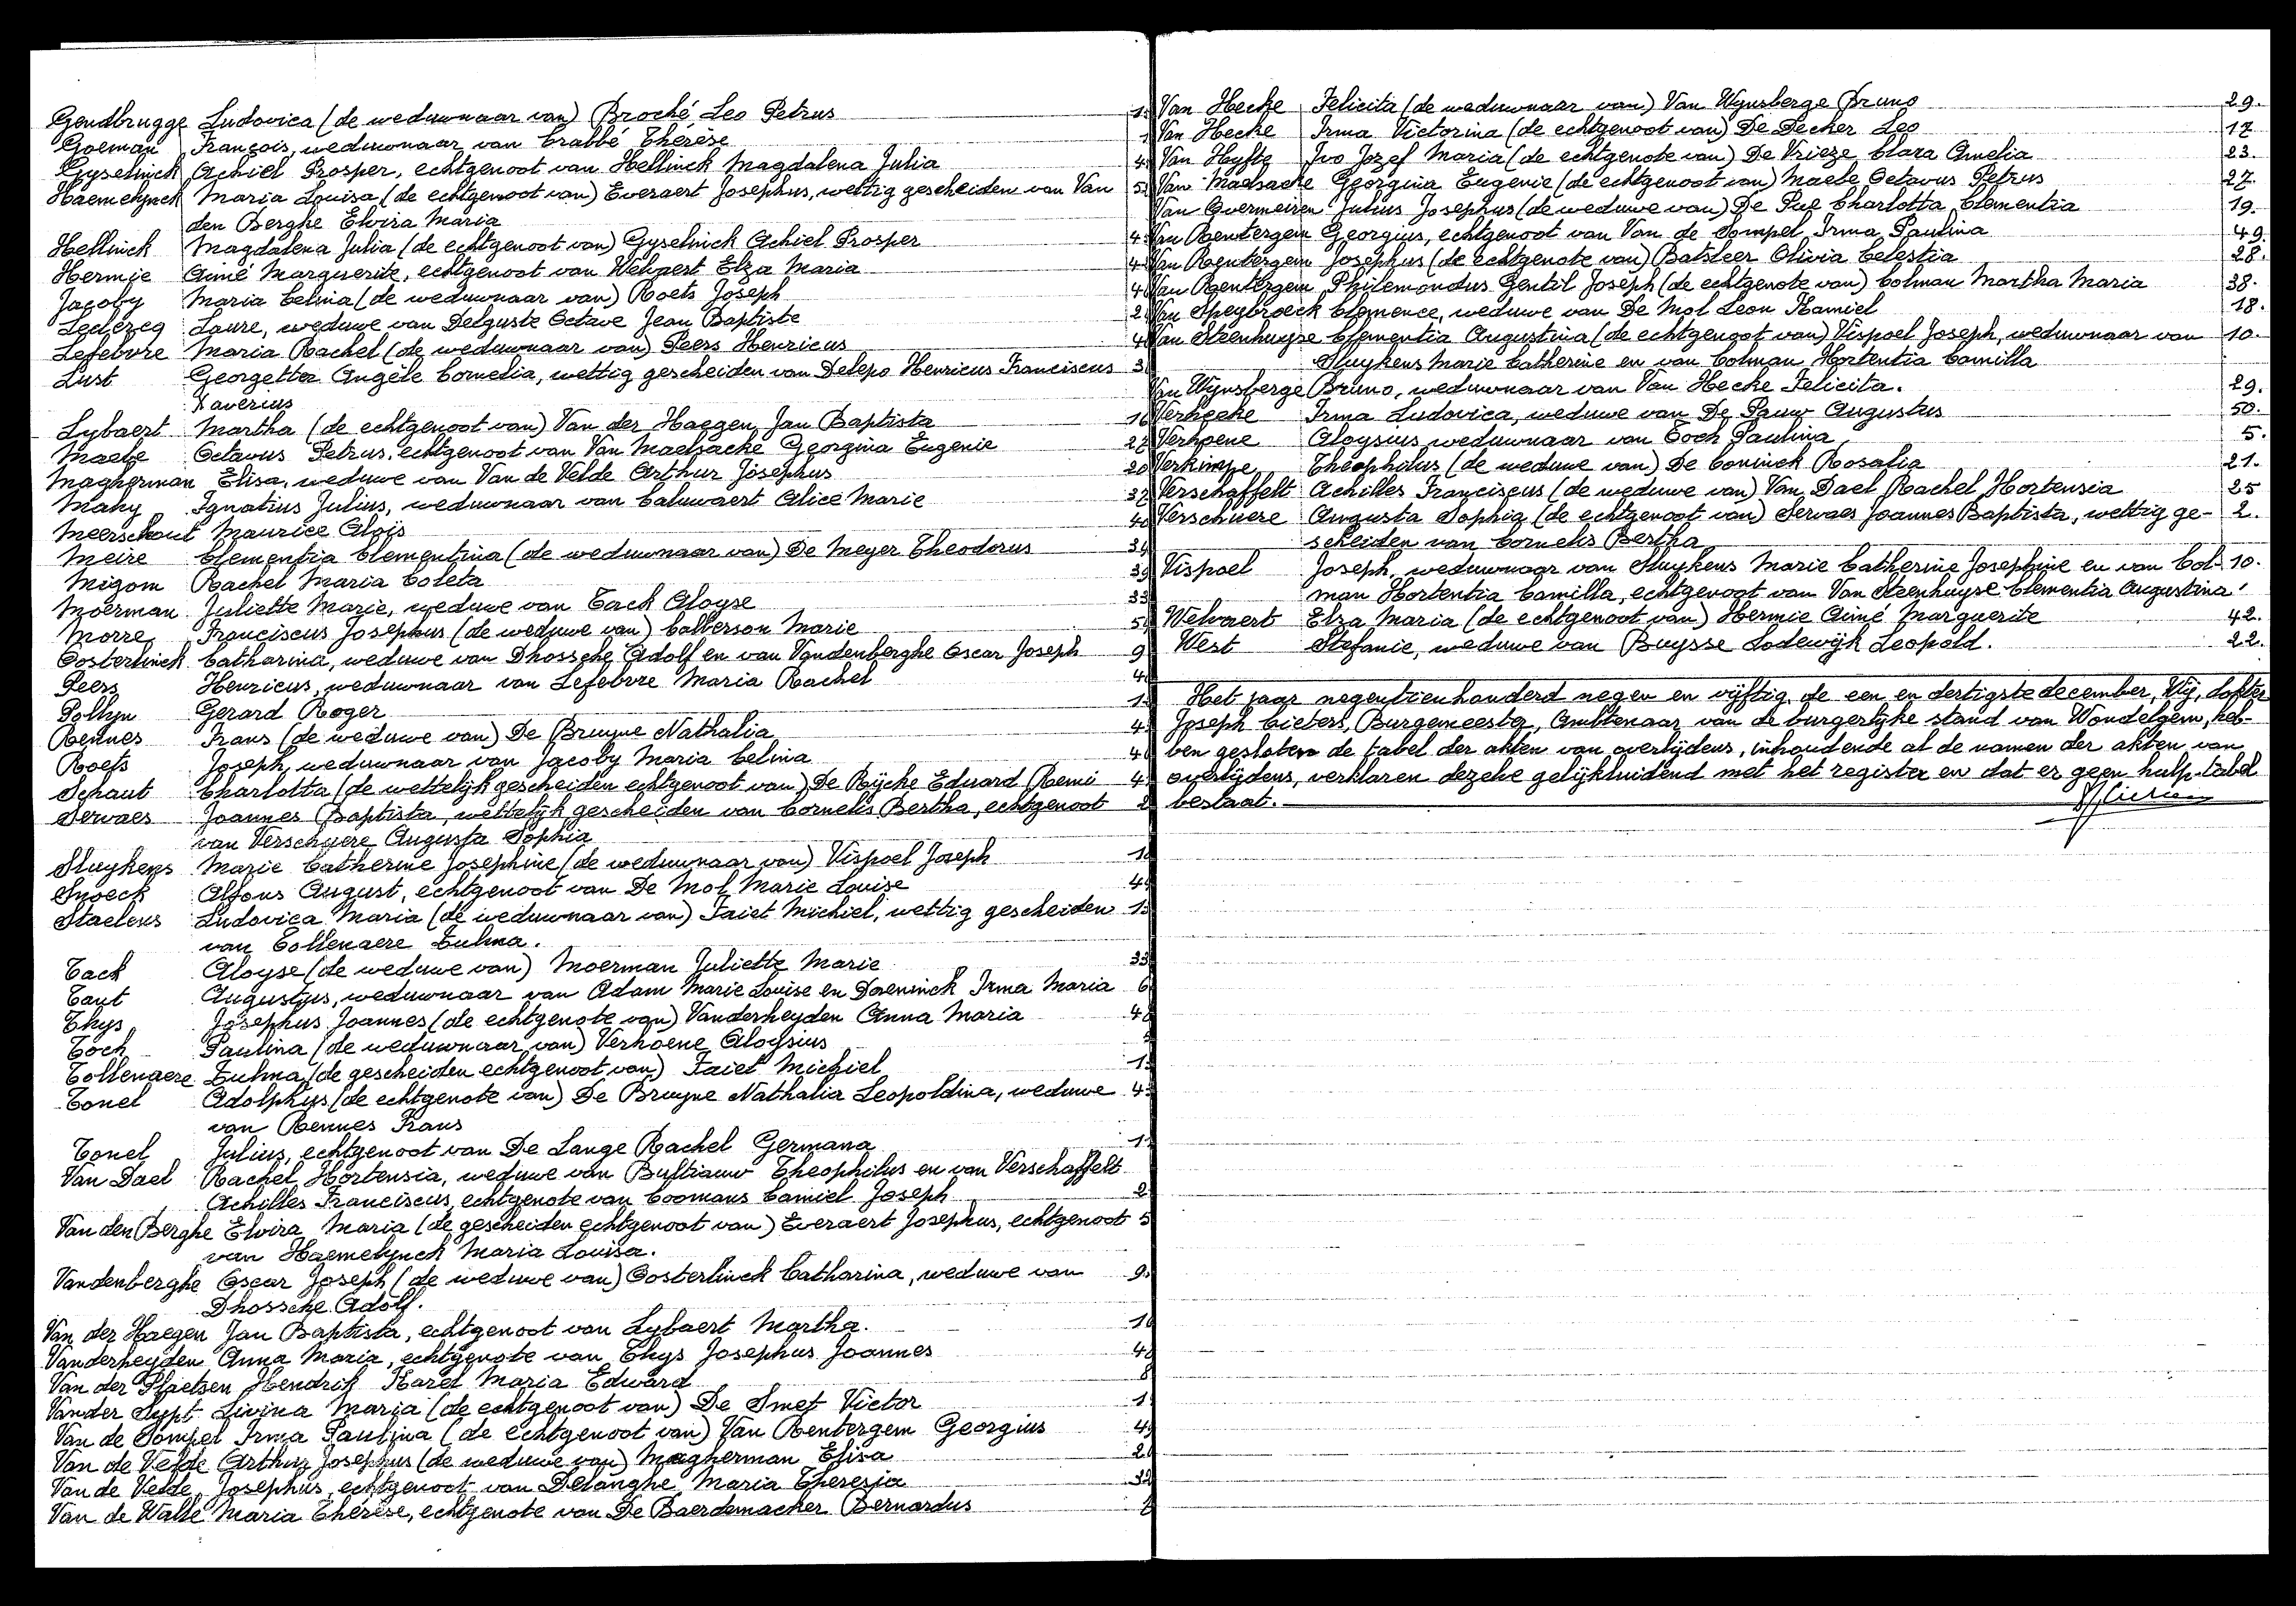 Gendbrugge Ludovica (de weduwnaar van) Broché Leo Petrus
Goeman François, weduwnaar van Crabbé Thérèse
Gyselinck Achiel Prosper, echtgenoot van Hellinck Magdalena Julia
Haemelynck Maria Louisa (de echtgenoot van) Everaert Josephus, wettig gescheiden van Van
den Berghe Elvira Maria
Hellinck Magdalena Julia (de echtgenoot van) Gyselinck Achiel Prosper
Hermie Aimé Marguerite, echtgenoot van Welvaert Elza Maria
Jacoby Maria Celina (de weduwnaar van) Roets Joseph
Leclercq Laure, weduwe van Delguste Octave Jean Baptiste
Lefebvre Maria Rachel (de weduwnaar van) Peers Henricus
Lust Georgetta Angèle Cornelia, wettig gescheiden van Delepo Henricus Franciscus
Xaverius
Lybaert Martha (de echtgenoot van) Van der Haegen Jan Baptista
Maebe Octavus Petrus, echtgenoot van Van Maelsacke Georgina Eugenie
Magherman Elisa, weduwe van Van de Velde Arthur Josephus
Mahy Ignatius Julius, weduwnaar van Caluwaert Alice Marie
Meerschaut Maurice Alois
Meire Clementia Clementina (de weduwnaar van) De Meyer Theodorus
Migom Rachel Maria Coleta
Moerman Juliette Marie, weduwe van Tack Aloyse
Morre Franciscus Josephus (de weduwe van) Calberson Marie
Oosterlinck Catharina, weduwe van Dhossche Adolf en van Vandenberghe Oscar Joseph 9
Peers Henricus, weduwnaar van Lefebvre Maria Rachel
Pollyn Gerard Roger
Rennes Frans (de weduwe van) De Bruyne Nathalia
Roets Joseph, weduwnaar van Jacoby Maria Celina
Schaut Charlotta (de wettelijk gescheiden echtgenoot van) De Rijcke Eduard Remi
Servaes Joannes Baptista, wettelijk gescheiden van Cornelis Bertha, echtgenoot
van Verschuere Augusta Sophia
Sluykens Marie Catherine Josephine (de weduwnaar van) Vispoel Joseph
Snoeck Alfons August, echtgenoot van De Mol Marie Louise
Staelens Ludovica Maria (de weduwnaar van) Faict Michiel, wettig gescheiden
van Tollenaere Zulma.
Tack Aloyse (de weduwe van) Moerman Juliette Marie 33
Tant Augustus, weduwnaar van Adam Marie Louise en Doeninck Irma Maria
Thys Josephus Joannes (de echtgenote van) Vanderheyden Anna Maria
Toch Paulina (de weduwnaar van) Verhoene Aloysius
Tollenaere Zulma (de gescheiden echtgenoot van) Faict Michiel
Tonel Adolphus (de echtgenote van) De Bruyne Nathalia Leopoldina, weduwe
van Rennes Frans
Tonel Julius, echtgenoot van De Lange Rachel Germana
Van Dael Rachel Hortensia, weduwe van Bultiauw Theophilus en van Verschaffelt
Achilles Franciscus, echtgenote van Coomans Camiel Joseph
Van den Berghe Elvira Maria (de gescheiden echtgenoot van) Everaert Josephus, echtgenoot
van Haemelynck Maria Louisa.
Vandenberghe Oscar Joseph (de weduwe van) Oosterlinck Catharina, weduwe van 9.
Dhossche Adolf.
Van der Haegen Jan Baptista, echtgenoot van Lybaert Martha.
Vanderheyden Anna Maria, echtgenote van Thys Josephus Joannes
Van der Plaetsen Hendrik Karel Maria Edward
Vander Sypt Livina Maria (de echtgenoot van) De Smet Victor
Van de Sompel Irma Paulina (de echtgenoot van) Van Renterghem Georgius
Van de Velde Arthur Josephus (de weduwe van) Magherman Elisa
Van de Velde Josephus, echtgenoot van Delanghe Maria Theresia
Van de Walle Maria Thérèse, echtgenote van De Baerdemaeker Bernardus
Van Hecke Felicita (de weduwnaar van) Van Wynsberge Bruno 29.
Van Hecke Irma Victorina (de echtgenoot van) De Decker Leo 17
Van Hyfte Ivo Jozef Maria (de echtgenote van) De Vrieze Clara Amelia 23.
Van Maelsacke Georgina Eugenie (de echtgenoot van) Maebe Octavus Petrus 27.
Van Overmeiren Julius Josephus (de weduwe van) De Pue Charlotta Clementia 19.
Van Rentergem Georgius, echtgenoot van Van de Sompel Irma Paulina 49.
Van Rentergem Josephus (de echtgenote van) Batsleer Olivia Celestia 28.
Van Rentergem Philemondus Gentil Joseph (de echtgenote van) Colman Martha Maria 38.
Van Speybroeck Clemence, weduwe van De Mol Leon Kamiel 18.
Van Steenhuyse Clementia Augustina (de echtgenoot van) Vispoel Joseph, weduwnaar van 10.
Sluykens Marie Catherine en van Colman Hortentia Camilla
Van Wynsberge Bruno, weduwnaar van Van Hecke Felicita. 29.
Verhecke Irma Ludovica, weduwe van De Pauw Augustus 50.
Verhoene Aloysius weduwnaar van Toch Paulina 5.
Verkimpe Theophilus (de weduwe van) De Coninck Rosalia 21.
Verschaffelt Achilles Franciscus (de weduwe van) Van Dael Rachel Hortensia 25
Verschuere Augusta Sophia (de echtgenoot van) Servaes Joannes Baptista, wettig ge- 2.
scheiden van Cornelis Bertha
Vispoel Joseph, weduwnaar van Sluykens Marie Catherine Josephine en van Col- 10.
man Hortentia Camilla, echtgenoot van Van Steenhuyse Clementia Augustina
Welvaert Elza Maria (de echtgenoot van) Hermie Aimé Marguerite 42.
West Stefanie, weduwe van Buysse Lodewijk Leopold. 22.
Het jaar negentienhonderd negen en vijftig de een en dertigste december, Wij, dokter
Joseph Cieters, Burgemeester, Ambtenaar van de burgerlijke stand van Wondelgem, heb-
ben gesloten de tabel der akten van overlijdens, inhoudende al de namen der akten van
overlijdens, verklaren dezelve gelijkluidend met het register en dat er geen hulp-tabel
bestaat.